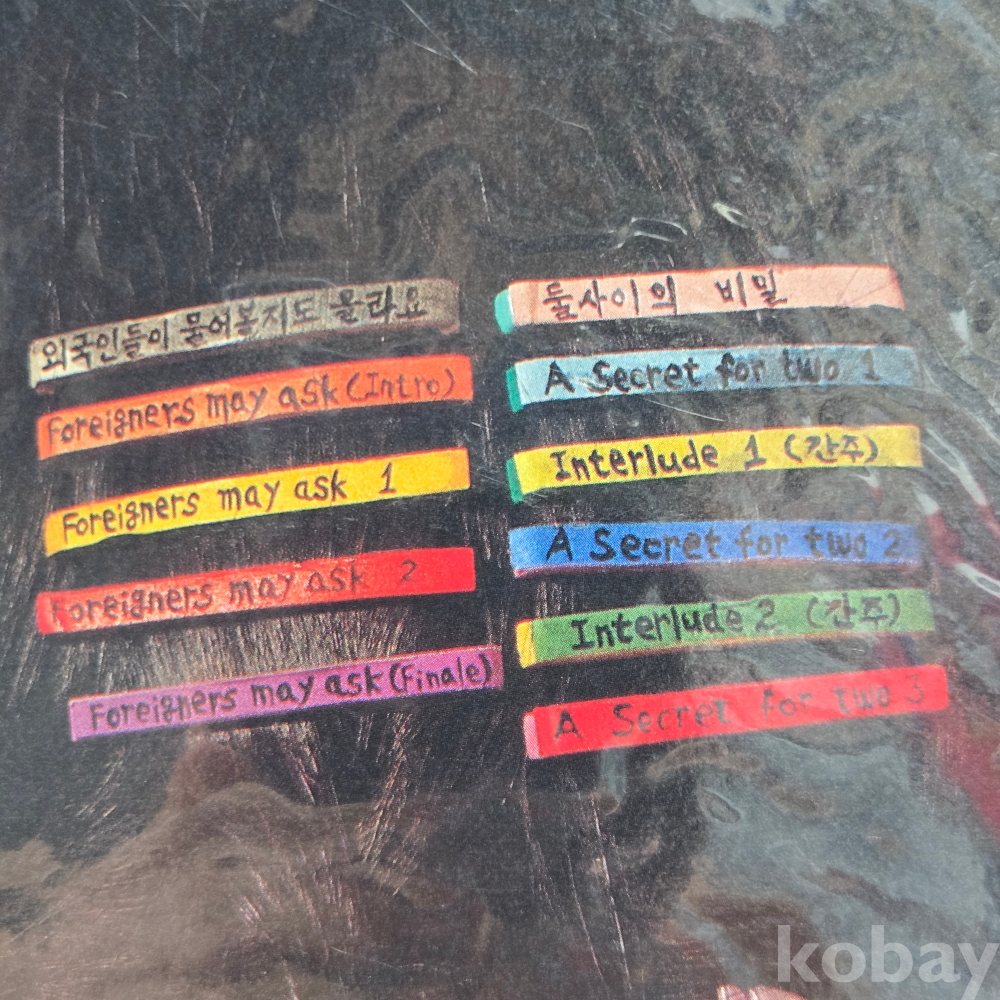 외국인들이 물어볼지도 몰라요
Foreigners may ask (Intro)
Foreigners may ask 1
Foreigners may ask 2
Foreigners may ask (Finale)
둘사이의 비밀
A Secret for two 1
Interlude 1 (간주)
A Secret for two 2
Interlude 2 (간주)
A Secret for two 3
kobay